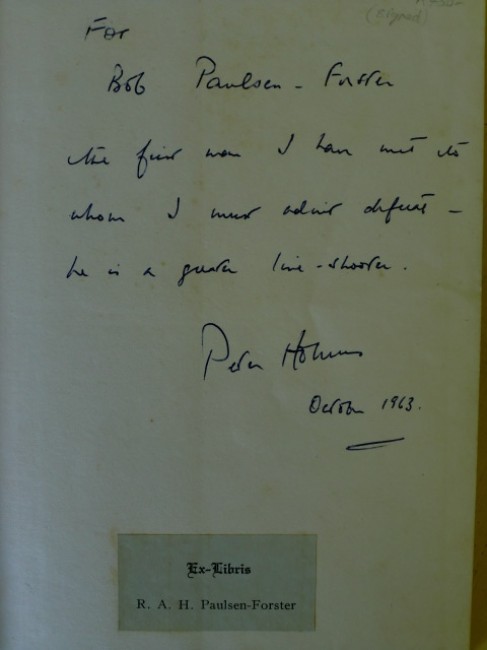 (signed)
For
Bob Paulsen - Forster
the first man I have met to
whom I must admit defeat –
he is a greater line-shooter.
Peter Holmes
October 1963.
Ex-Libris
R. A. H. Paulsen-Forster